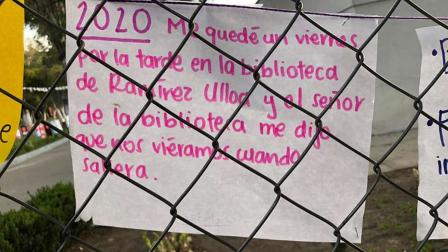 2020 Me quedé un viernes
por la tarde en la biblioteca
de Ramírez Ulloa y el señor
de la biblioteca me dijo
que nos viéramos cuando
saliera.